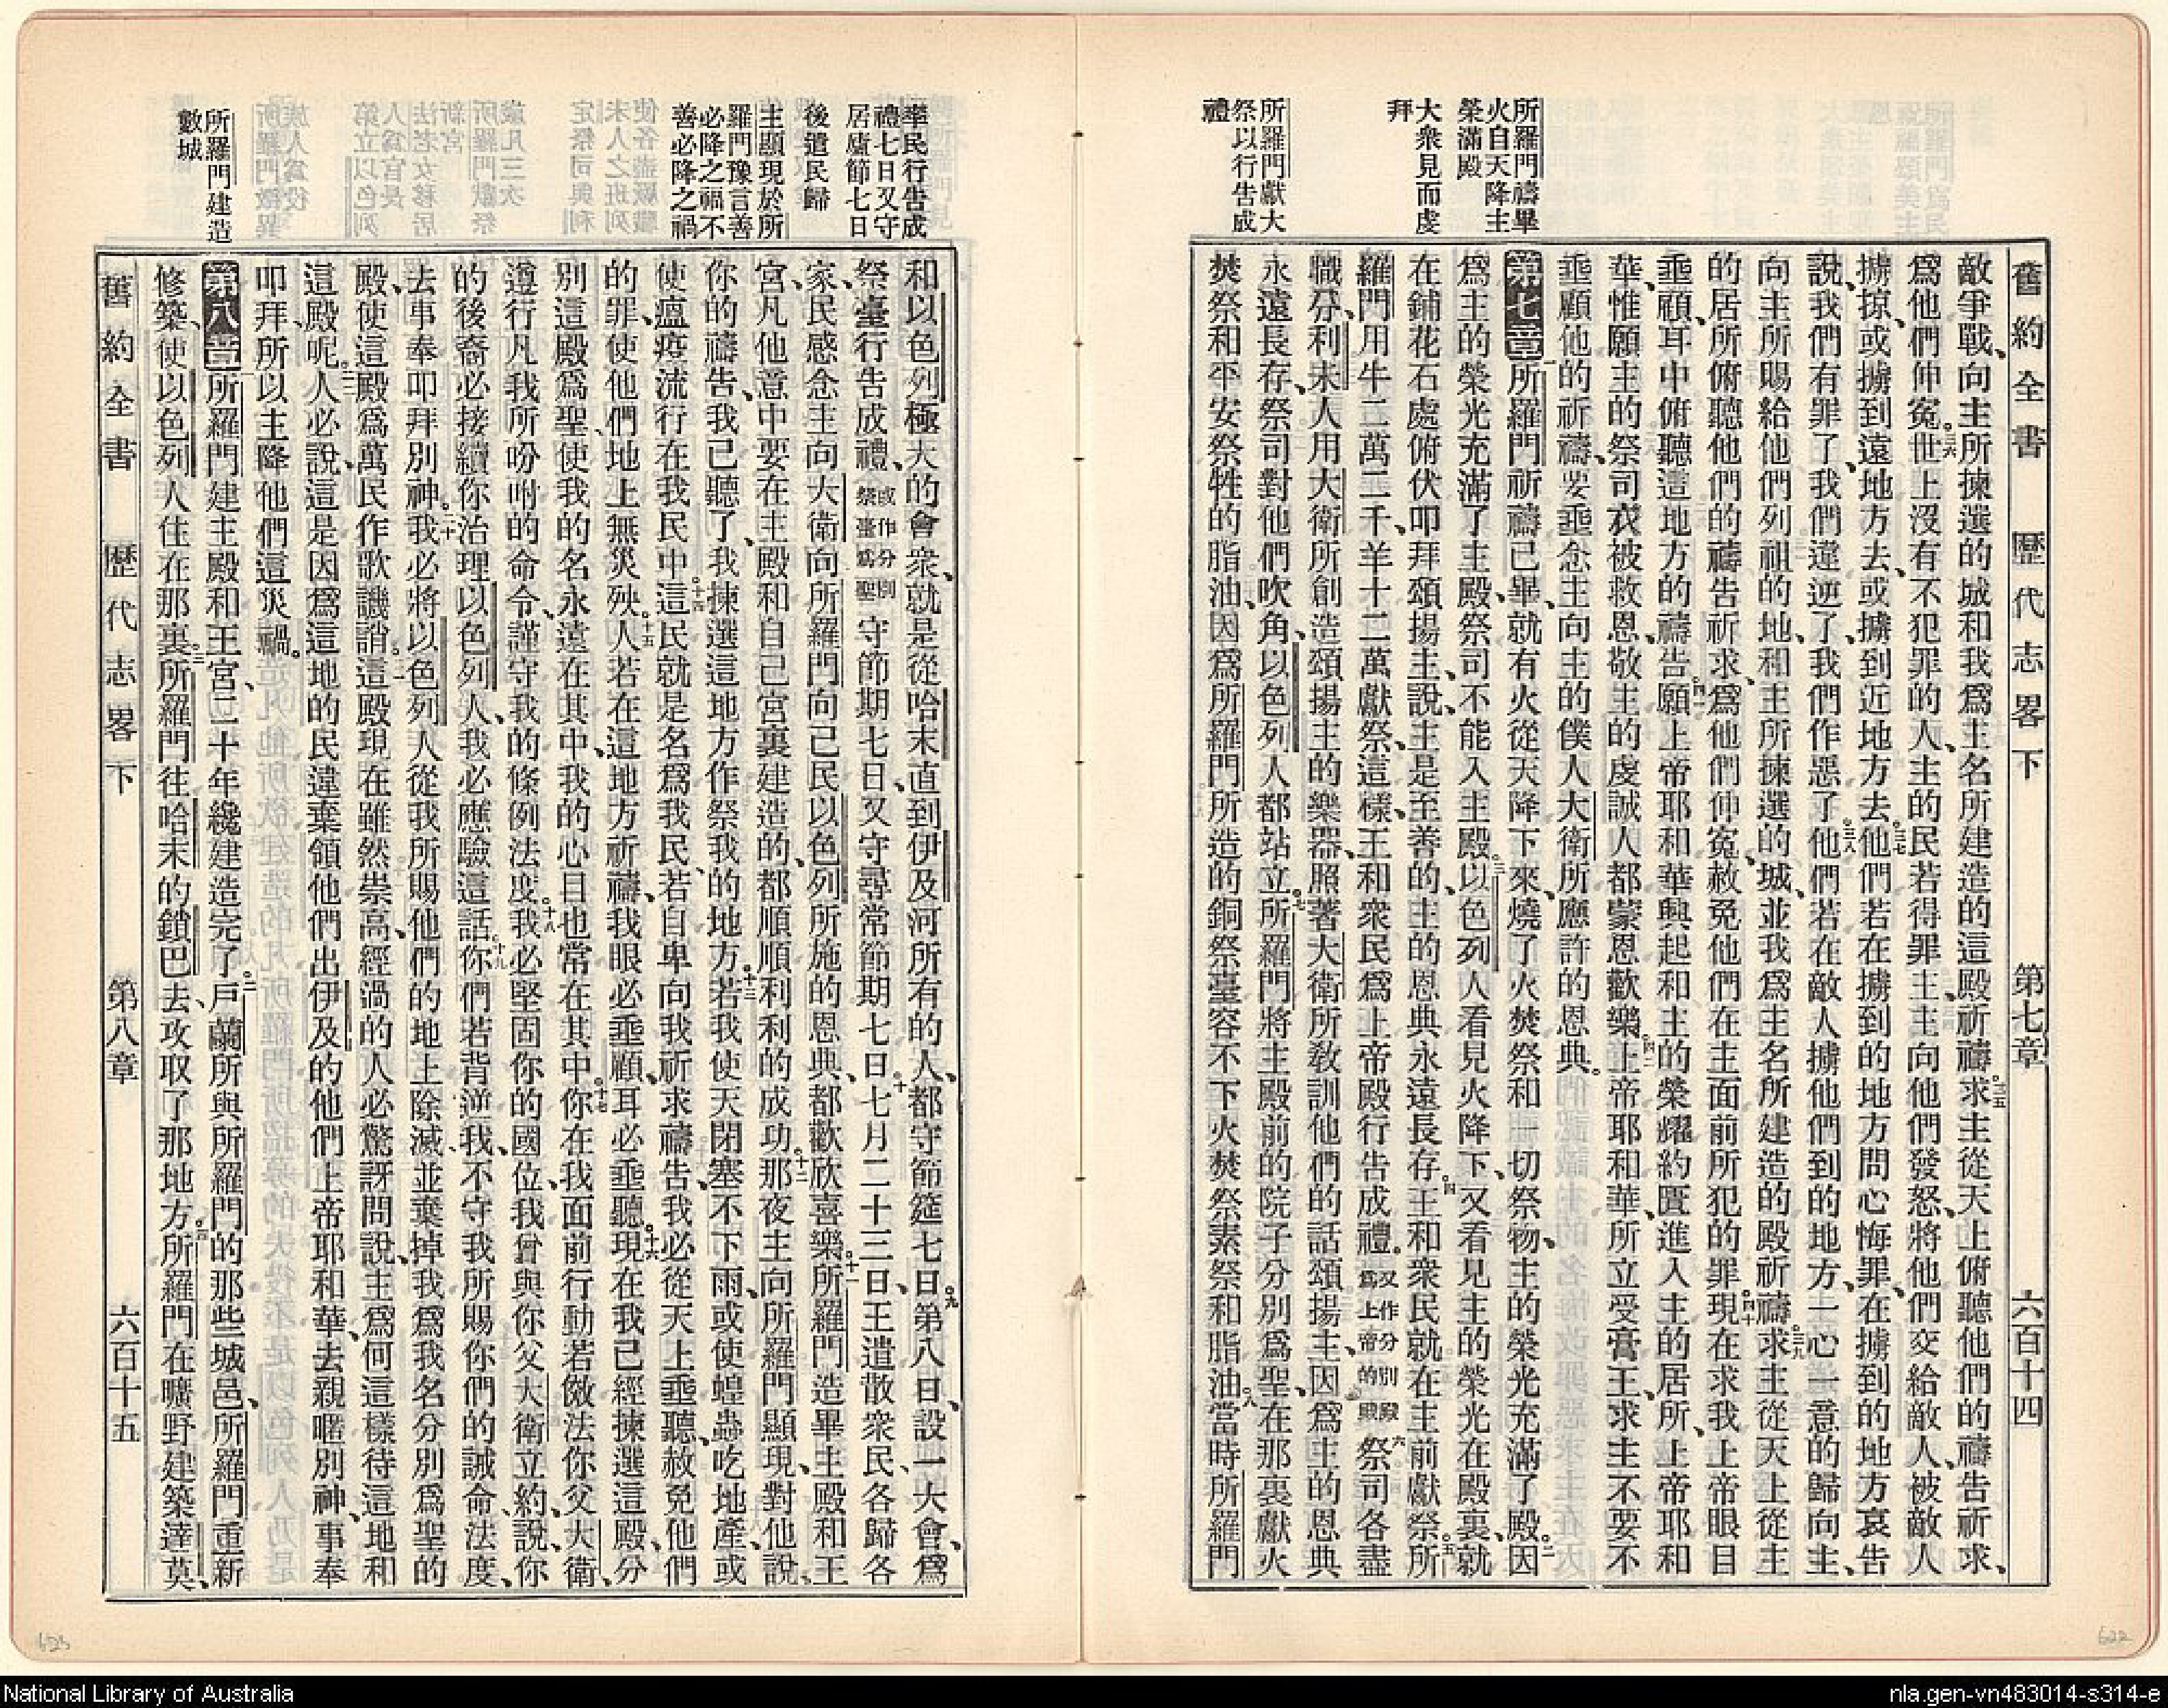 舊約全書 歷代志畧下 第七章 六百十四
所羅門禱畢
火自天降主
榮滿殿
大衆見而虔
拜
所羅門獻大
祭以行告成
禮
敵爭戰、向主所揀選的城和我爲主名所建造的這殿祈禱。三五求主從天上俯聽他們的禱告祈求、
爲他們伸冤。三六世上沒有不犯罪的人、主的民若得罪主、主向他們發怒、將他們交給敵人、被敵人
擄掠、或擄到遠地方去、或擄到近地方去。三七他們若在擄到的地方問心悔罪、在擄到的地方哀告
說、我們有罪了、我們違逆了、我們作惡了。三八他們若在敵人擄他們到的地方、一心一意的歸向主、
向主所賜給他們列祖的地、和主所揀選的城、並我爲主名所建造的殿祈禱。三九求主從天上從主
的居所、俯聽他們的禱告祈求、爲他們伸冤、赦免他們在主面前所犯的罪。四十現在求我上帝眼目
垂顧、耳中俯聽這地方的禱告。四一願上帝耶和華興起和主的榮耀約匱進入主的居所、上帝耶和
華、惟願主的祭司衣被救恩、敬主的虔誠人都蒙恩歡樂。四二上帝耶和華、所立受膏王、求主不要不
垂顧他的祈禱、要垂念主向主的僕人大衛所應許的恩典。
第七章 一所羅門祈禱已畢、就有火從天降下來、燒了火焚祭和一切祭物、主的榮光充滿了殿。二因
爲主的榮光充滿了主殿、祭司不能入主殿。三以色列人看見火降下、又看見主的榮光在殿裏、就
在鋪花石處俯伏叩拜頌揚主、說、主是至善的、主的恩典永遠長存。四王和衆民就在主前獻祭。五所
羅門用牛二萬二千、羊十二萬獻祭、這樣、王和衆民爲上帝殿行告成禮。又作分別殿爲上帝的殿六祭司各盡
職分、利未人用大衛所創造頌揚主的樂器、照著大衛所敎訓他們的話頌揚主、因爲主的恩典
永遠長存、祭司對他們吹角、以色列人都站立。七所羅門將主殿前的院子分別爲聖、在那裏獻火
焚祭和平安祭牲的脂油、因爲所羅門所造的銅祭臺容不下火焚祭素祭和脂油。八當時所羅門
率民行告成
禮七日又守
居廬節七日
後遣民歸
主顯現於所
羅門豫言善
必降之福不
善必降之禍
所羅門建造
數城
和以色列極大的會衆、就是從哈末直到伊及河所有的人、都守節筵七日。九第八日、設一大會、爲
祭臺行告成禮、或作分別祭臺爲聖守節期七日、又守尋常節期七日。十七月二十三日、王遣散衆民、各歸各
家、民感念主向大衛向所羅門向己民以色列所施的恩典、都歡欣喜樂。十一所羅門造畢主殿和王
宮、凡他意中要在主殿和自己宮裏建造的、都順順利利的成功。十二那夜主向所羅門顯現、對他說、
你的禱告、我已聽了、我揀選這地方作祭我的地方。十三若我使天閉塞不下雨、或使蝗蟲吃地產、或
使瘟疫流行在我民中。十四這民就是名爲我民、若自卑向我祈求禱告、我必從天上垂聽、赦免他們
的罪、使他們地上無災殃。十五人若在這地方祈禱、我眼必垂顧、耳必垂聽。十六現在我已經揀選這殿、分
別這殿爲聖、使我的名永遠在其中、我的心目也常在其中。十七你在我面前行動若傚法你父大衛、
遵行凡我所吩咐的命令、謹守我的條例法度。十八我必堅固你的國位、我曾與你父大衛立約、說、你
的後裔必接續你治理以色列人、我必應驗這話。十九你們若背逆我、不守我所賜你們的誡命法度、
去事奉叩拜別神。二十我必將以色列人從我所賜他們的地上除滅、並棄掉我爲我名分別爲聖的
殿、使這殿爲萬民作歌譏誚。二一這殿現在雖然崇高、經過的人必驚訝問說、主爲何這樣待這地和
這殿呢。二二人必說、這是因爲這地的民違棄領他們出伊及的他們上帝耶和華、去親暱別神、事奉
叩拜、所以主降他們這災禍。
第八章 一所羅門建主殿和王宮、二十年纔建造完了。二戶蘭所與所羅門的那些城邑、所羅門重新
修築、使以色列人住在那裏。三所羅門往哈末的鎖巴去、攻取了那地方。四所羅門在曠野建築達莫、
舊約全書 歷代志畧下 第八章 六百十五
623
622
National Library of Australia
nla.gen-vn483014-s314-e